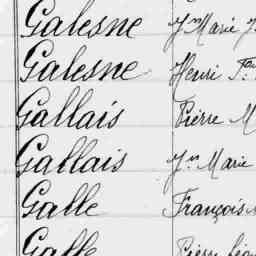 Galesne Jn Marie
Galesne Henri
Gallais Pierre M
Gallais Jn Marie
Galle François
Galle Pierre Léon